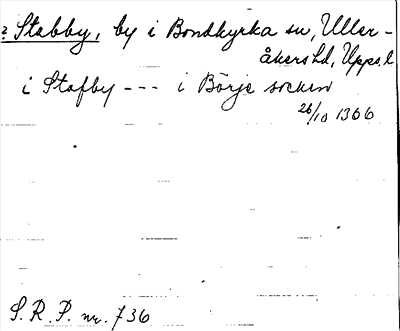 ? Stabby, by i Bondkyrka sn, Uller-
åkers hd, Upps. l
i Stafby --- i Börje socken
26/10 1366
S.R.P. nr. 736